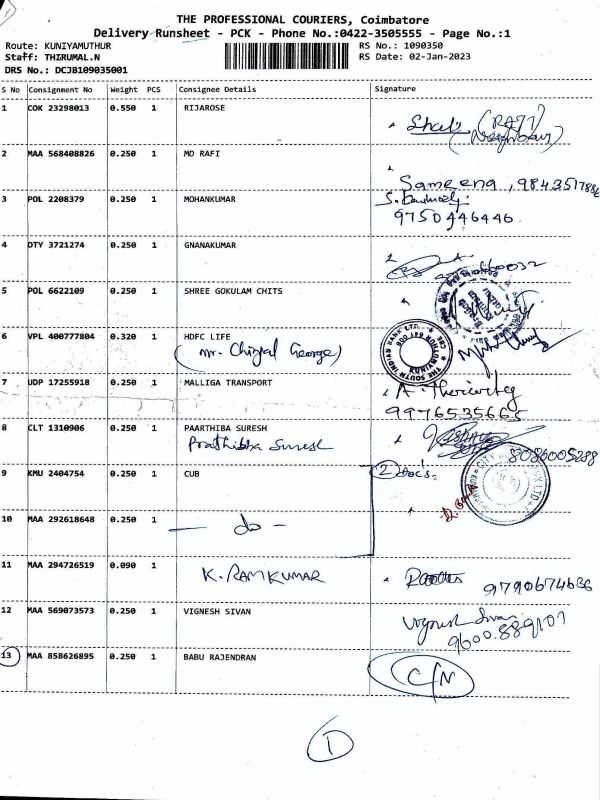 THE PROFESSIONAL COURIERS, Coimbatore
Delivery Runsheet - PCK - Phone No.:0422-3505555 - Page No.:1
Route: KUNIYAMUTHUR RS No.: 1090350
Staff: THIRUMAL.N RS Date: 02-Jan-2023
DRS No.: DCJB109035001
S No Consignment No Weight PCS Consignee Details Signature
1 COK 23298013 0.550 1 RIJAROSE
2 MAA 568408826 0.250 1 MD RAFI
Sameena, 9843517886
3 POL 2208379 0.250 1 MOHANKUMAR
9750446446
4 OTY 3721274 0.250 1 GNANAKUMAR
5 POL 6622109 0.250 1 SHREE GOKULAM CHITS
6 VPL 400777804 0.320 1 HDFC LIFE
THE SOUTH INDIAN BANK LTD.
7 UDP 17255918 0.250 1 MALLIGA TRANSPORT
9976535665
8 CLT 1310906 0.250 1 PAARTHIBA SURESH
Prathibha Suresh 8086005288
9 KMU 2404754 0.250 1 CUB 2 Doc's.
10 MAA 292618648 0.250 1 - do -
11 MAA 294726519 0.090 1 K. RAMKUMAR
9790674636
12 MAA 569073573 0.250 1 VIGNESH SIVAN Vignesh Sivan
13 MAA 858626895 0.250 1 BABU RAJENDRAN C/N
1